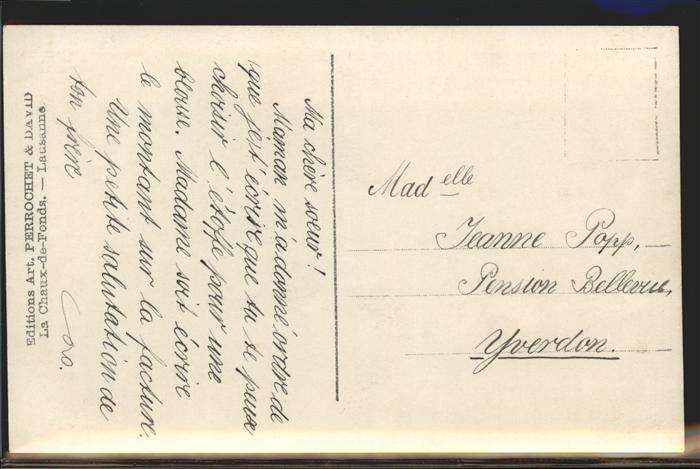 Ma chère soeur!
Maman m'a donné l'ordre de
que j'est écrire que tu te peux
choisir l'étoffe pour une
blouse. Madame soit écrire
le montant sur la facture.
Une petite salutation de
ton frère
Editions Art. PERROCHET & DAVID
La Chaux-de-Fonds. — Lausanne.
Madelle
Jeanne Popp,
Pension Bellevue,
Yverdon.